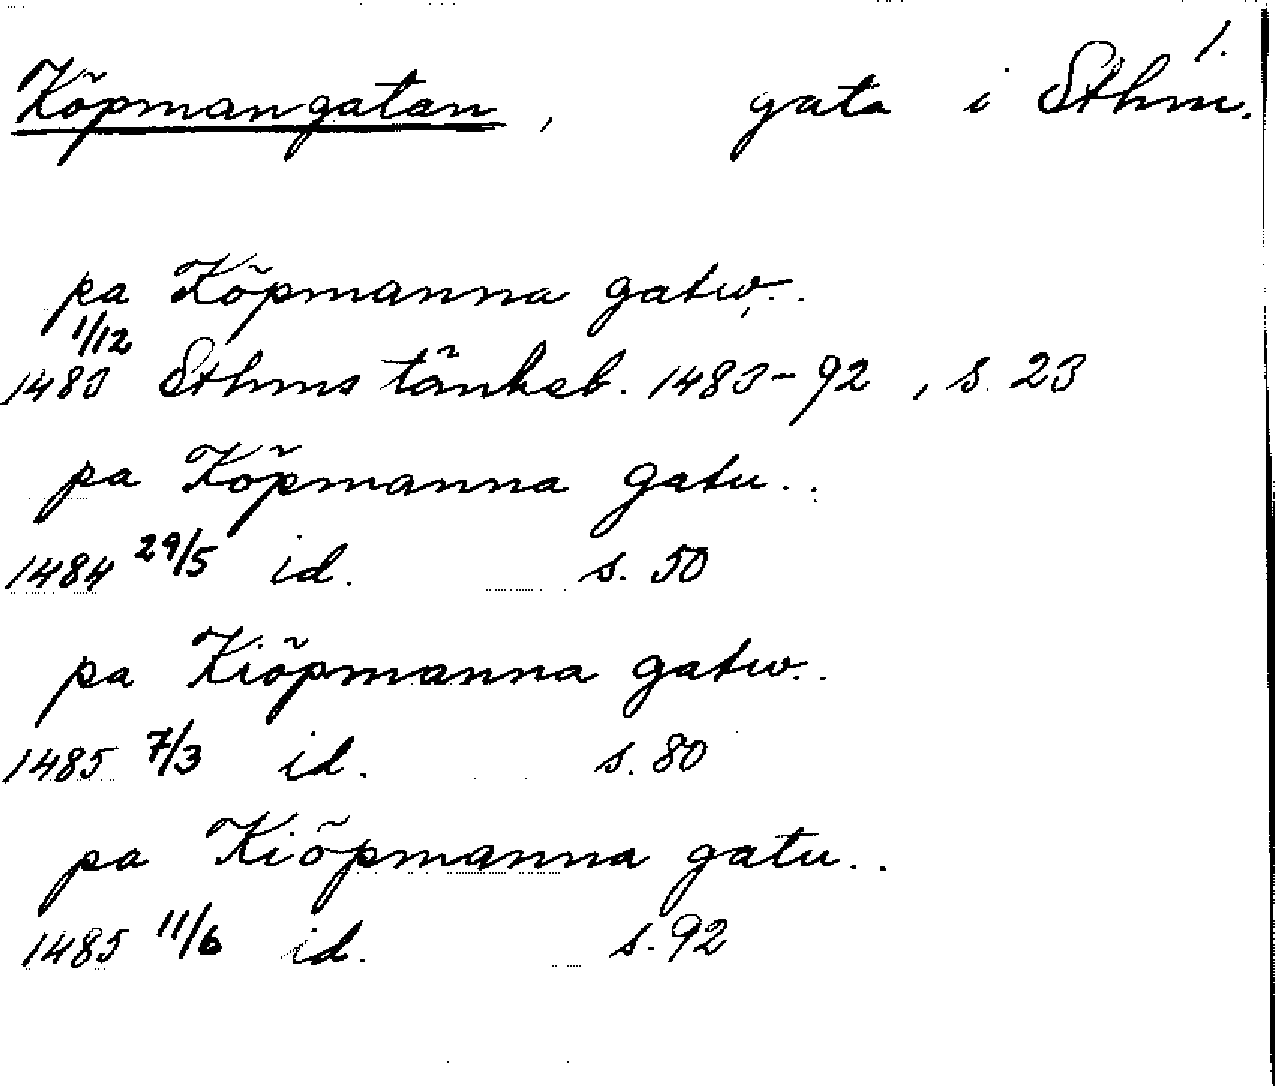 1.
Köpmangatan, gata i Sthm.
pa Köpmanna gatw..
1/12
1483 Sthms tänkeb. 1483-92, s. 23
pa Köpmanna gatu..
1484 29/5 id. s. 50
pa Kiöpmanna gatw..
1485 7/3 id. s. 80
pa Kiöpmanna gatu..
1485 11/6 id. s. 92